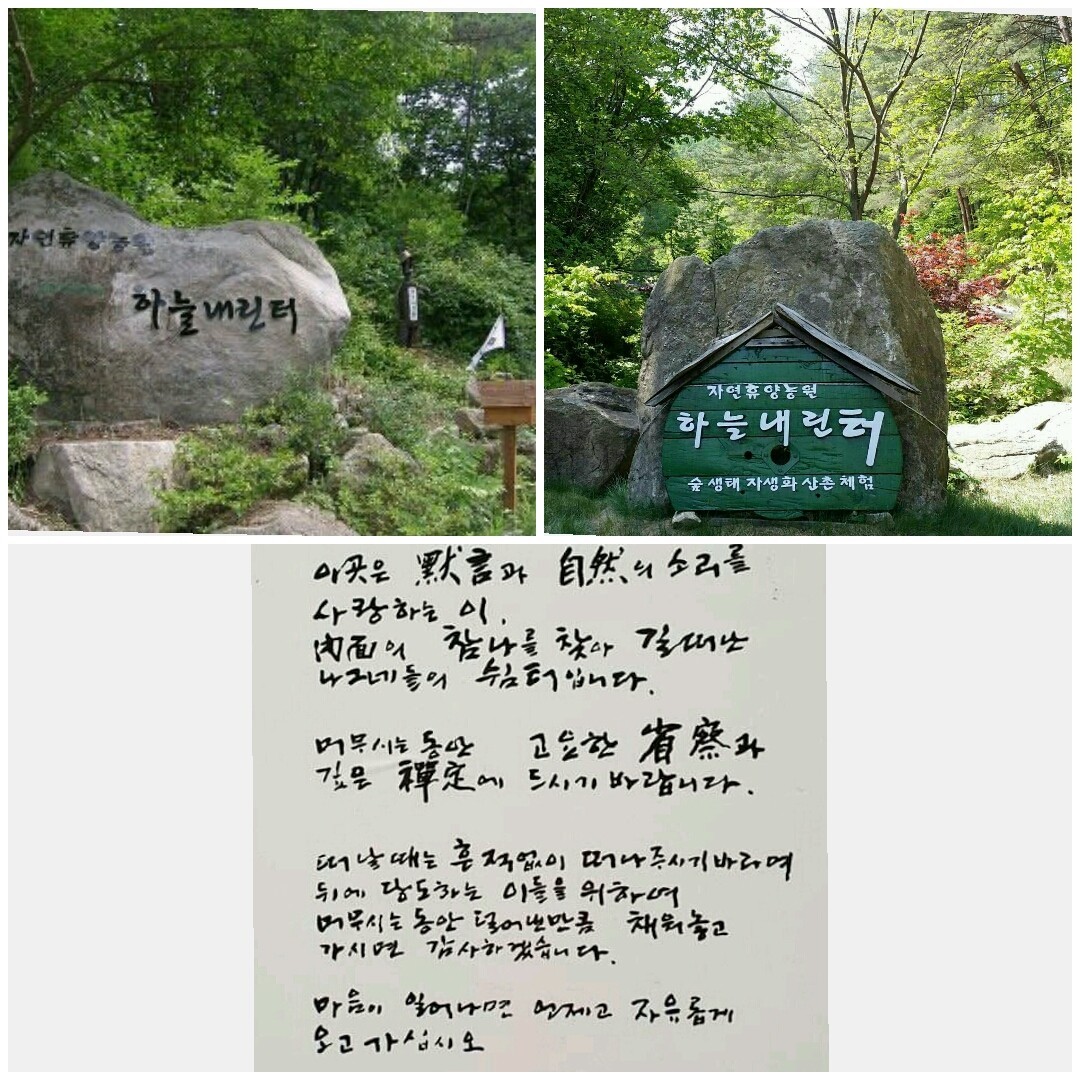 자연휴양농원
하늘내린터
자연휴양농원
하늘내린터
숲생태 자생화 산촌체험
이곳은 默言과 自然의 소리를
사랑하는 이,
內面의 참나를 찾아 길떠난
나그네들의 쉼터입니다.
머무시는동안 고요한 省察과
깊은 禪定에 드시기 바랍니다.
떠날때는 흔적없이 떠나주시기바라며
뒤에 당도하는 이들을 위하여
머무시는동안 덜어낸만큼 채워놓고
가시면 감사하겠습니다.
마음이 일어나면 언제고 자유롭게
오고가십시오